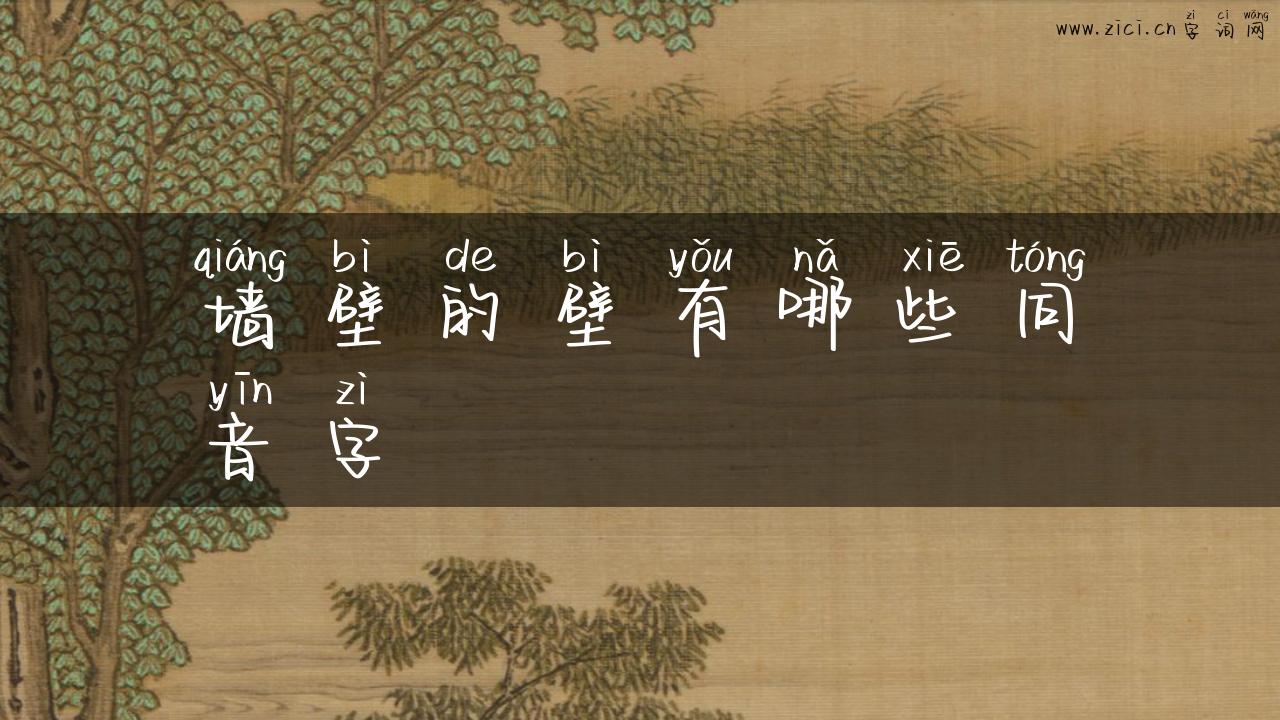 zì cí wǎng
www.zici.cn字词网
qiáng bì de bì yǒu nǎ xiē tóng
墙壁的壁有哪些同
yīn zì
音字